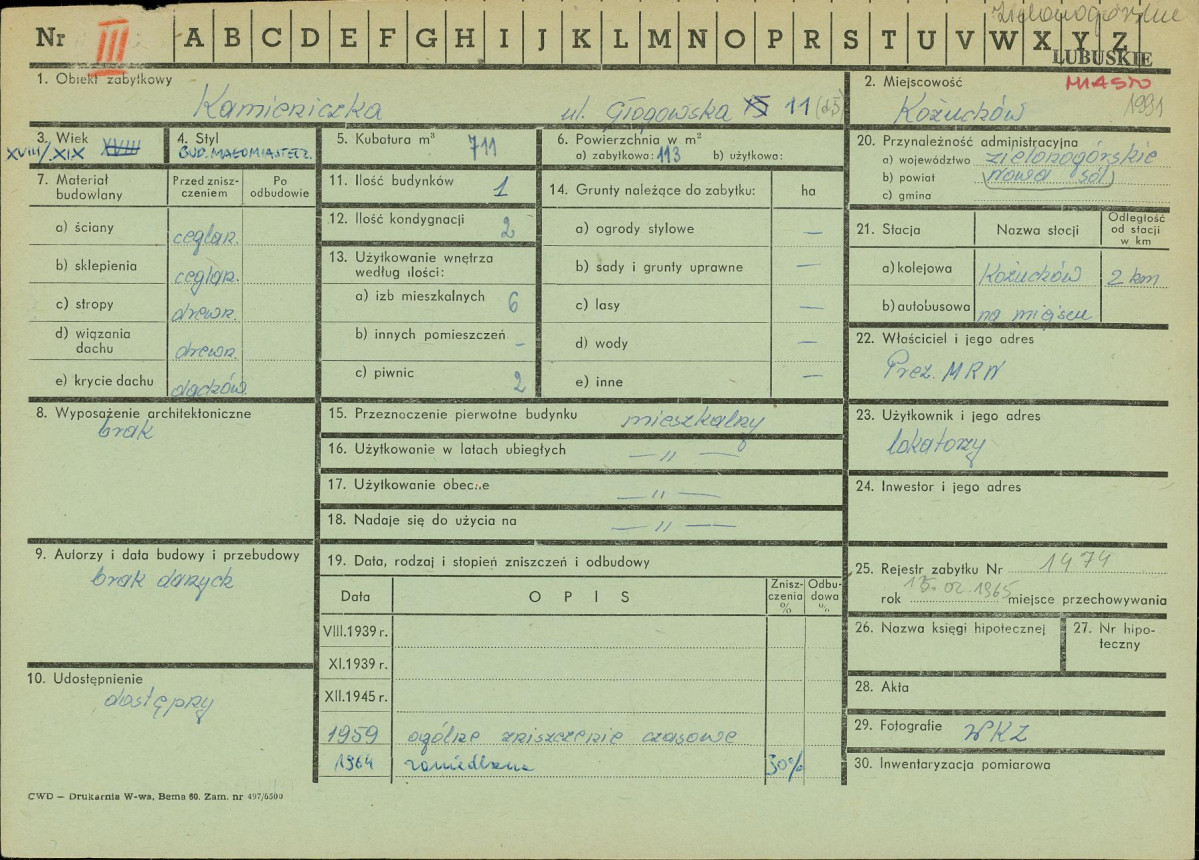 Zielonogórskie
Nr III A B C D E F G H I J K L M N O P R S T U V W X Y Z
LUBUSKIE
1. Obiekt zabytkowy
Kamieniczka ul. Głogowska 11
2. Miejscowość MIASTO
Kożuchów 1991
3. Wiek XVIII/XIX XVIII
4. Styl
BUD. MAŁOMIASTECZ.
5. Kubatura m³ 711
6. Powierzchnia w m²
a) zabytkowa: 113 b) użytkowa:
7. Materiał budowlany
Przed znisz-
czeniem
Po
odbudowie
a) ściany ceglan.
b) sklepienia ceglan.
c) stropy drewn.
d) wiązania
dachu drewn.
e) krycie dachu dachów.
8. Wyposażenie architektoniczne
brak
9. Autorzy i data budowy i przebudowy
brak danych
10. Udostępnienie
dostępny
11. Ilość budynków 1
12. Ilość kondygnacji 2
13. Użytkowanie wnętrza
według ilości:
a) izb mieszkalnych 6
b) innych pomieszczeń -
c) piwnic 2
14. Grunty należące do zabytku: ha
a) ogrody stylowe —
b) sady i grunty uprawne —
c) lasy —
d) wody —
e) inne —
15. Przeznoczenie pierwotne budynku mieszkalny
16. Użytkowanie w latach ubiegłych — „ —
17. Użytkowanie obecne — „ —
18. Nadaje się do użycia na — „ —
19. Data, rodzaj i stopień zniszczeń i odbudowy
Data OPIS Znisz-
czenia
%
Odbu-
dowa
%
VIII.1939 r.
XI.1939 r.
XII.1945 r.
1959 ogólne zniszczenie czasowe
1964 zaniedbana 30%
20. Przynależność administracyjna
a) województwo zielonogórskie
b) powiat Nowa Sól
c) gmina
21. Stacja Nazwa stacji Odległość
od stacji
w km
a) kolejowa Kożuchów 2 km
b) autobusowa na miejscu
22. Właściciel i jego adres
Prez. MRN
23. Użytkownik i jego adres
lokatorzy
24. Inwestor i jego adres
25. Rejestr zabytku Nr 1474
rok 15.02.1965 miejsce przechowywania
26. Nazwa księgi hipotecznej
27. Nr hipo-
teczny
28. Akta
29. Fotografie WKZ
30. Inwentaryzacja pomiarowa
CWD — Drukarnia W-wa, Bema 60. Zam. nr 497/6500